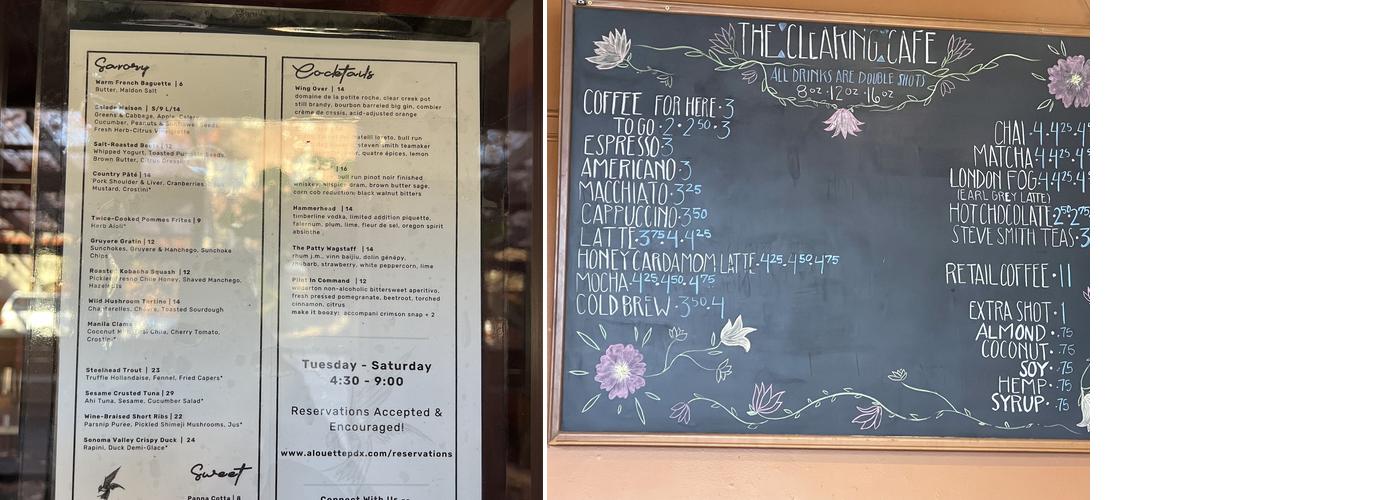 Savory
Warm French Baguette | 6
Butter, Maldon Salt
Salade Maison | 5/9 L/14
Greens & Cabbage, Apple, Celery
Cucumber, Peanuts & Sunflower Seeds,
Fresh Herb-Citrus Vinaigrette
Salt-Roasted Beets | 12
Whipped Yogurt, Toasted Pumpkin Seeds,
Brown Butter, Citrus Dressing
Country Pâté | 14
Pork Shoulder & Liver, Cranberries
Mustard, Crostini*
Twice-Cooked Pommes Frites | 9
Herb Aioli*
Gruyere Gratin | 12
Sunchokes, Gruyere & Manchego, Sunchoke
Chips
Roasted Kobacha Squash | 12
Pickled Fresno Chile Honey, Shaved Manchego,
Hazelnuts
Wild Mushroom Tartine | 14
Chanterelles, Chevre, Toasted Sourdough
Manila Clams
Coconut Chile, Cherry Tomato,
Crostini*
Steelhead Trout | 23
Truffle Hollandaise, Fennel, Fried Capers*
Sesame Crusted Tuna | 29
Ahi Tuna, Sesame, Cucumber Salad*
Wine-Braised Short Ribs | 22
Parsnip Puree, Pickled Shimeji Mushrooms, Jus*
Sonoma Valley Crispy Duck | 24
Rapini, Duck Demi-Glace*
Sweet
Panna Cotta | 8
Cocktails
Wing Over | 14
domaine de la petite roche, clear creek pot
still brandy, bourbon barreled big gin, combier
crème de cassis, acid-adjusted orange
loreto, bull run
steven smith teamaker
quatre épices, lemon
| 16
bull run pinot noir finished
whiskey, allspice dram, brown butter sage,
corn cob reduction, black walnut bitters
Hammerhead | 14
timberline vodka, limited addition piquette,
falernum, plum, lime, fleur de sel, oregon spirit
absinthe
The Patty Wagstaff | 14
rhum j.m., vinn baijiu, dolin génépy,
rhubarb, strawberry, white peppercorn, lime
Pilot In Command | 12
wilderton non-alcoholic bittersweet aperitivo,
fresh pressed pomegranate, beetroot, torched
cinnamon, citrus
make it boozy: accompani crimson snap + 2
Tuesday - Saturday
4:30 - 9:00
Reservations Accepted &
Encouraged!
www.alouettepdx.com/reservations
Connect With Us
THE CLEARING CAFE
ALL DRINKS ARE DOUBLE SHOTS
8oz · 12oz · 16oz
COFFEE FOR HERE · 3
TO GO · 2 · 2.50 · 3
ESPRESSO 3
AMERICANO · 3
MACCHIATO · 3.25
CAPPUCCINO · 3.50
LATTE · 3.75 · 4 · 4.25
HONEY CARDAMOM LATTE · 4.25 · 4.50 · 4.75
MOCHA · 4.25 · 4.50 · 4.75
COLD BREW · 3.50 · 4
CHAI · 4 · 4.25 · 4
MATCHA · 4 · 4.25 · 4
LONDON FOG · 4 · 4.25 · 4
(EARL GREY LATTE)
HOT CHOCOLATE 2.50 2.75
STEVE SMITH TEAS · 3
RETAIL COFFEE · 11
EXTRA SHOT · 1
ALMOND · .75
COCONUT · .75
SOY · .75
HEMP · .75
SYRUP · .75